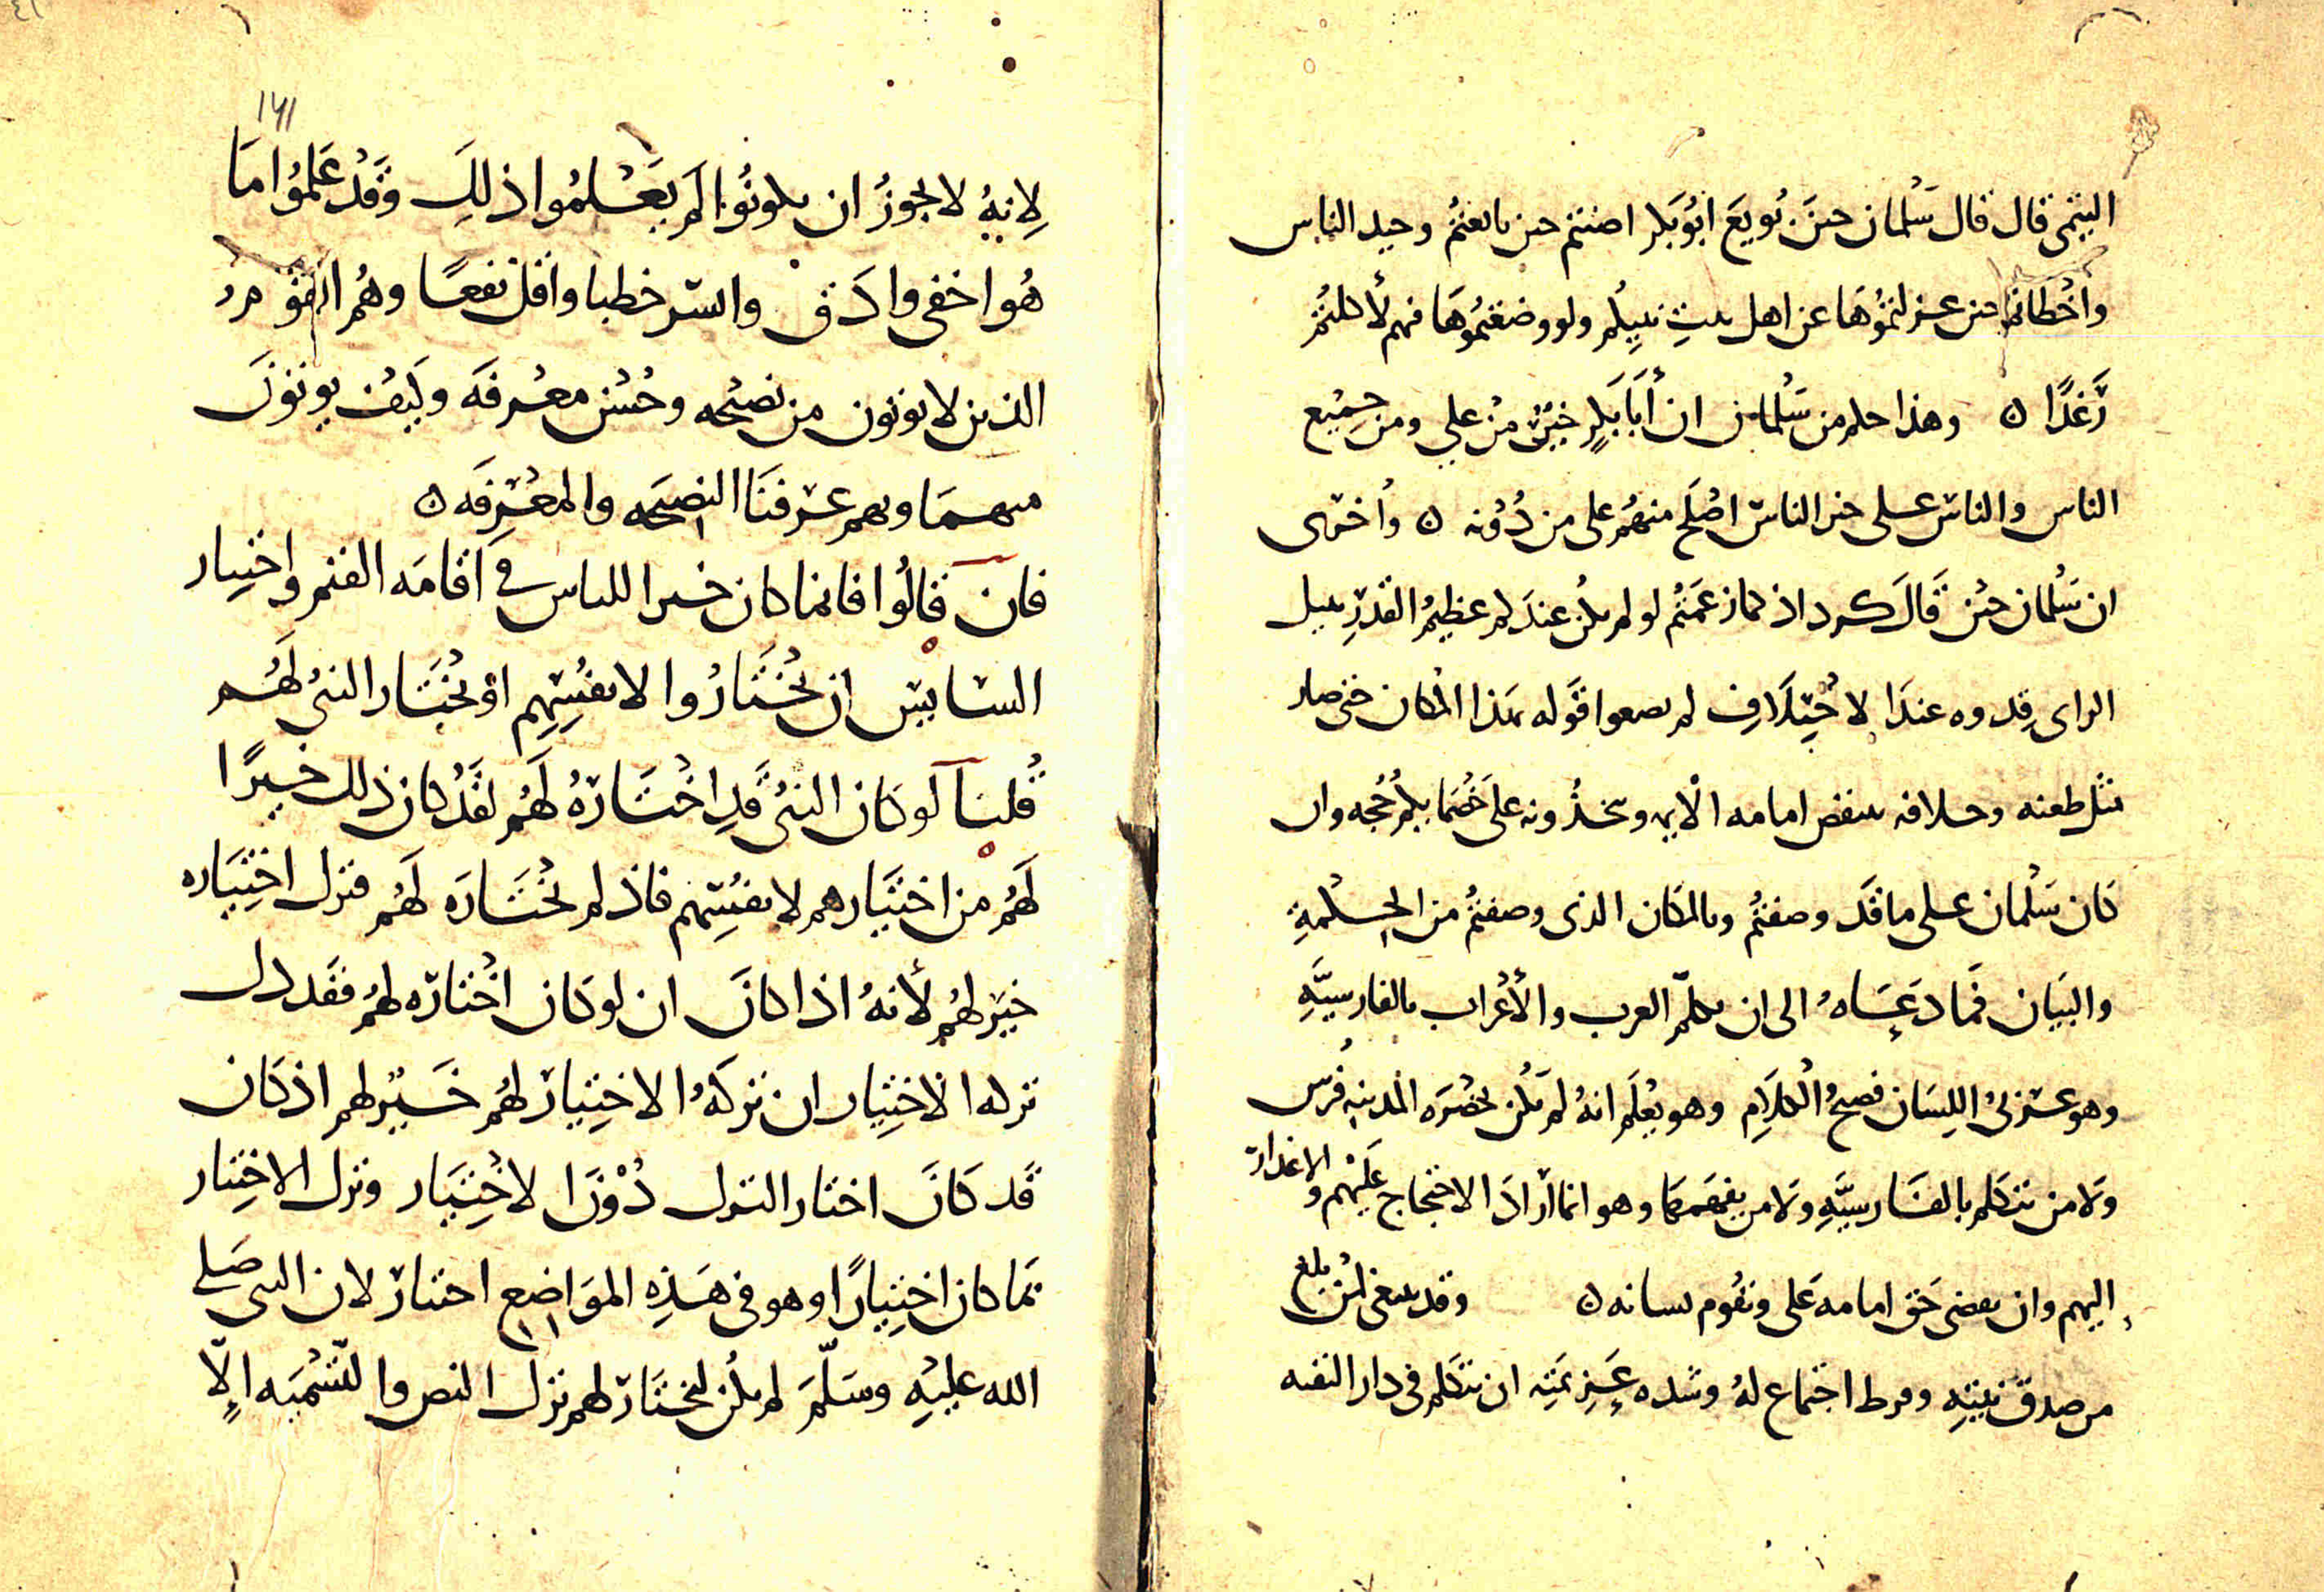 التيمي قال قال سَلمان حين بُويعَ ابُو بَكر اصبتم حين بايعتُم وحيد الناس
واخطاتم حين عزلتمُوهَا عن اهل بيتِ نبيِكم ولو وضعتمُوهَا فيهم لأكلتُم
رَغدًا ٥ وهذا حكم من سَلمان ان أبَا بَكرٍ خيرٌ من علي ومن جميْع
الناس والناس على خير الناس اصْلَح منهُم على من دُونه ٥ واخرى
ان سَلمان حين قَالَ كرداذ كما زعمتُم لو لم يكن عندَكم عظيمُ القدرِ نبيل
الراى قدوه عندَ الاختِلَافِ لم تضعوا قَوله بهذا المكان حتى صار
مثل طعنه وخلافه ينقض امامه الايمه وتتخذُونه على خُصَمايكم حُجه وان
كان سَلمان على ما قَد وصفتُم وبالمكان الذى وصفتُم من الحِكمةِ
والبَيان فمَا دَعَاهُ الى ان يكلّم العرب والأعْراب بالفارسيَّهِ
وهو عربىُ اللِسَان فصيحُ الْكلَامِ وهو يعْلَم انهُ لم يكُن بحضْرَه المدينه فُرس
ولا من يتكلم بالفَارسيَّهِ ولا من يفهَمهَا وهو انما ارَادَ الاحتجاج عَليْهم والاعذار
اليهم وان يقضى حَق امامه عَلى ويقُوم بلسانه ٥ وقد ينبغى لمَن بلغ
من صدق نيتِه وفرط اجتماع لهُ وشده عَزِيمَتِه ان يتكلم فى دار التقيه
١٤١
لِانهُ لا يجوزُ ان يكونُوا لَم يَعْلمُوا ذلِكَ وقَد عَلِمُوا مَا
هُو اخفى وادَق وايسَر خطبا واقل نفعًا وهُم القوم
الذين لا يوتون من نصيحه وحُسْن معْرفَه وكَيفَ يوتونَ
منهمَا وبهم عرفنَا النصيحَه والمعْرِفَه ٥
فان قَالُوا فانما كان خيرا للناس فى اقامَه القيم واختِيار
السَايس ان يخْتَارُوا لانفُسِهِم او يخْتَار النبىُ لَهُم
قُلنَا لو كان النبىُ قَدِ اخْتَارهُ لَهُم لقَد كان ذلك خيرًا
لَهُم من اختيَارهم لانفُسِهم فاذ لم يخْتَارَه لَهُم فترك اختِيَاره
خيرٌ لهُم لأنهُ اذا كانَ ان لو كان اخْتارَه لهُم فقَد دل
تركه الاختِيار ان تركَهُ الاختِيارَ لهُم خَيْر لهم اذ كان
قَد كَانَ اختار الترك دُوْنَ الاخْتِيَار وترك الاختِيار
ربما كان اختِيَارًا وهو فى هَذِه الموَاضع اختيار لان النبى صَلى
الله عليْهِ وسَلّمَ لم يكُن ليختَارَ لهم ترك النص والتّسْميَه الّا